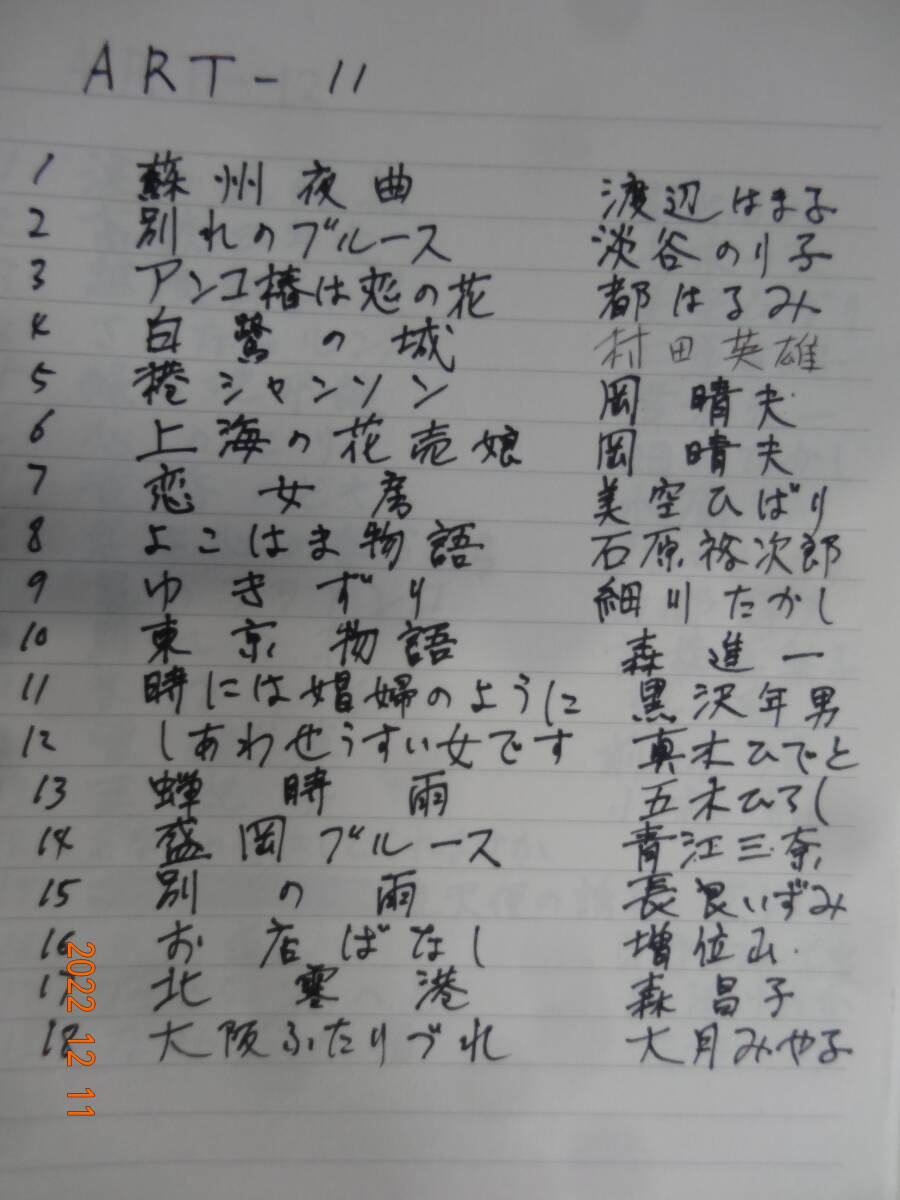 ART-11
1 蘇州夜曲 渡辺はま子
2 別れのブルース 淡谷のり子
3 アンコ椿は恋の花 都はるみ
4 白鷺の城 村田英雄
5 港シャンソン 岡晴夫
6 上海の花売娘 岡晴夫
7 恋女房 美空ひばり
8 よこはま物語 石原裕次郎
9 ゆきずり 細川たかし
10 東京物語 森進一
11 時には娼婦のように 黒沢年男
12 しあわせうすい女です 真木ひでと
13 蝉時雨 五木ひろし
14 盛岡ブルース 青江三奈
15 別の雨 長良いずみ
16 お店ばなし 増位山
17 北寒港 森昌子
18 大阪ふたりづれ 大月みやこ
2022 12 11